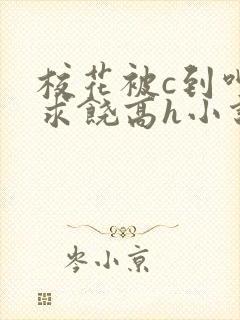 校花被c到叫
求饶高h小说
岑小京